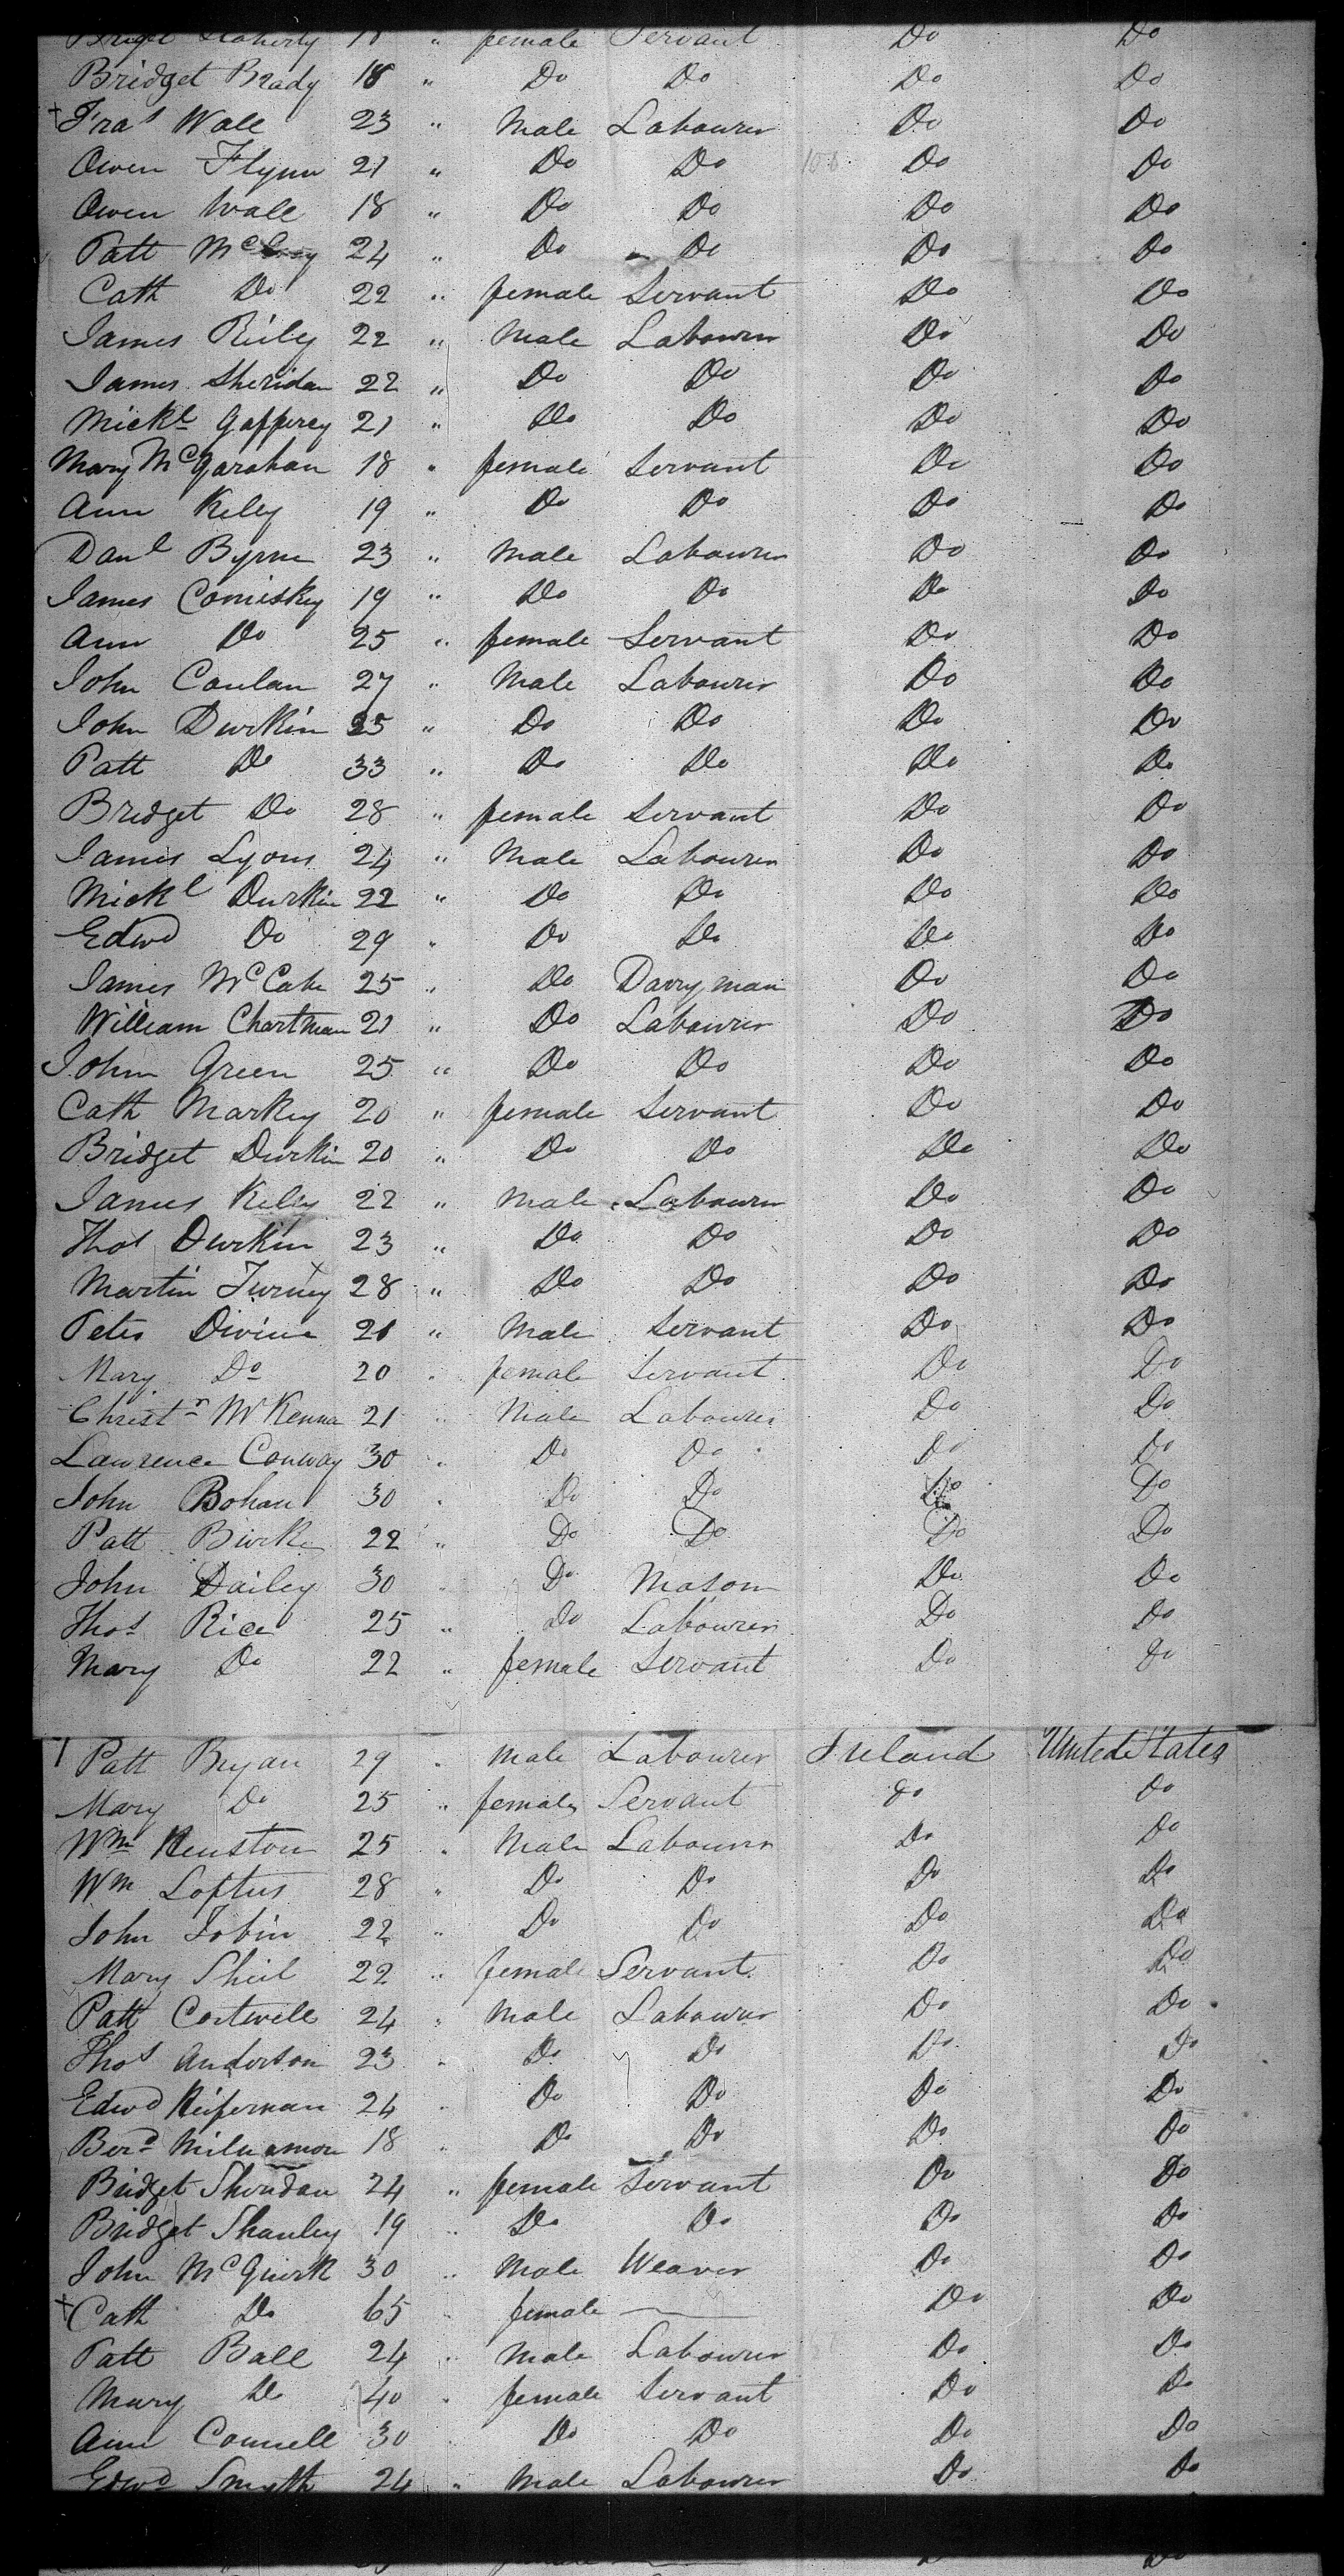 Bridget Flaherty 18 " female Servant Do Do
Bridget Brady 18 " Do Do Do Do
Fras Wall 23 " Male Labourer Do Do
Owen Flynn 21 " Do Do Do Do
Owen Wall 18 " Do Do Do Do
Patt 24 " Do Do Do Do
Cath Do 22 " female Servant Do Do
James Riely 22 " Male Labourer Do Do
James Sheridan 22 " Do Do Do Do
Mickl Gaffrey 21 " Do Do Do Do
Mary McGarahan 18 " female Servant Do Do
Ann Kiley 19 " Do Do Do Do
Danl Byrne 23 " Male Labourer Do Do
James Comiskey 19 " Do Do Do Do
Ann Do 25 " female Servant Do Do
John Conlan 27 " Male Labourer Do Do
John Durkin 25 " Do Do Do Do
Patt Do 33 " Do Do Do Do
Bridget Do 28 " female Servant Do Do
James Lyons 24 " Male Labourer Do Do
Mickl Durkin 22 " Do Do Do Do
Edwd Do 29 " Do Do Do Do
James McCabe 25 " Do Darryman Do Do
William Chartman 21 " Do Labourer Do Do
John Green 25 " Do Do Do Do
Cath Markey 20 " female Servant Do Do
Bridget Durkin 20 " Do Do Do Do
James Kiley 22 " Male Labourer Do Do
Thos Durkin 23 " Do Do Do Do
Martin Turney 28 " Do Do Do Do
Peter Divine 21 " Male Servant Do Do
Mary Do 20 " female Servant Do Do
Christr McKenna 21 " Male Labourer Do Do
Lawrence Conway 30 " Do Do Do Do
John Bohan 30 " Do Do Do Do
Patt Burke 22 " Do Do Do Do
John Dailey 30 " Do Mason Do Do
Thos Rice 25 " Do Labourer Do Do
Mary Do 22 " female Servant Do Do
Patt Bryan 29 " Male Labourer Ireland United States
Mary Do 25 " female Servant Do Do
Wm Heuston 25 " Male Labourer Do Do
Wm Loftus 28 " Do Do Do Do
John Tobin 22 " Do Do Do Do
Mary Shiel 22 " female Servant Do Do
Patt Cartwell 24 " Male Labourer Do Do
Thos Anderson 23 " Do Do Do Do
Edwd Heifernan 24 " Do Do Do Do
Berd 18 " Do Do Do Do
Bridget Sheridan 24 " female Servant Do Do
Bridget Shanley 19 " Do Do Do Do
John McGuirk 30 " Male Weaver Do Do
Cath Do 65 " female — Do Do
Patt Ball 24 " Male Labourer Do Do
Mary Do 40 " female Servant Do Do
Ann Connell 30 " Do Do Do Do
Edwd Smyth 24 " Male Labourer Do Do